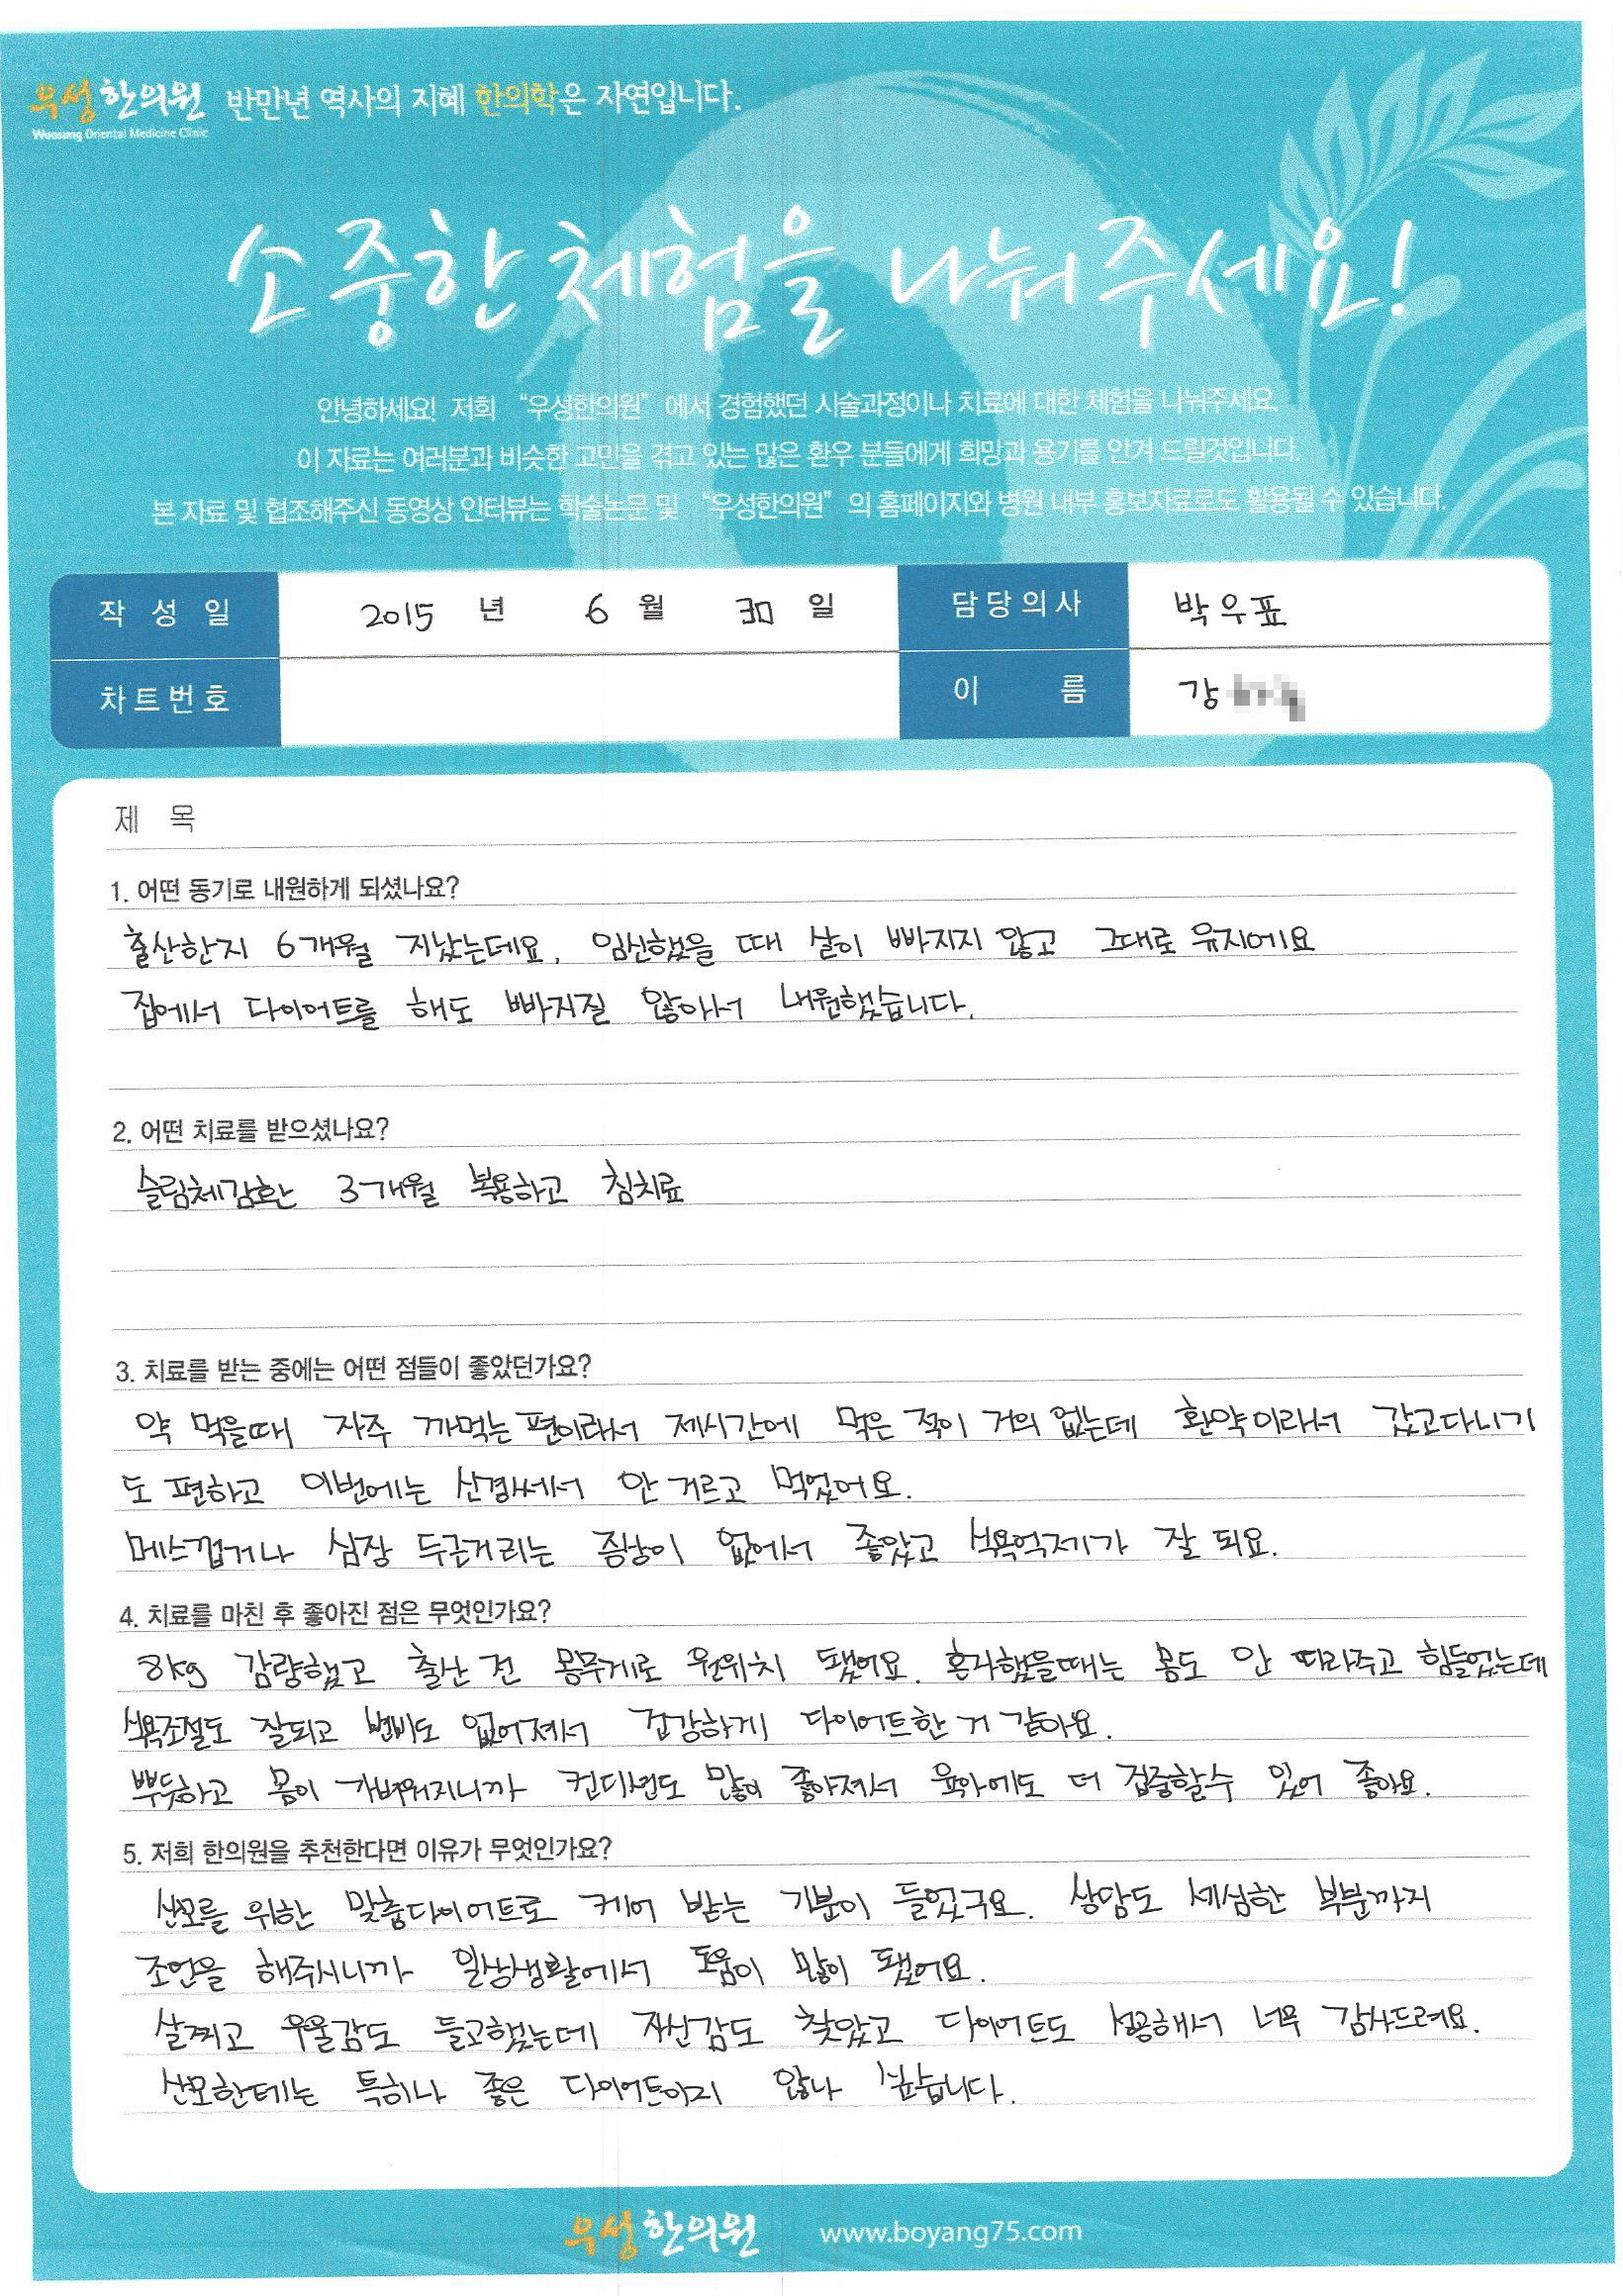 우성한의원 반만년 역사의 지혜 한의학은 자연입니다.
Woosung Oriental Medicine Clinic
소중한 체험을 나눠주세요!
안녕하세요! 저희 “우성한의원” 에서 경험했던 시술과정이나 치료에 대한 체험을 나눠주세요.
이 자료는 여러분과 비슷한 고민을 겪고 있는 많은 환우 분들에게 희망과 용기를 안겨 드릴것입니다.
본 자료 및 협조해주신 동영상 인터뷰는 학술논문 및 “우성한의원” 의 홈페이지와 병원 내부 홍보자료로도 활용될 수 있습니다.
작 성 일 2015 년 6 월 30 일 담당의사 박우표
차트번호 이 름 강
제 목
1. 어떤 동기로 내원하게 되셨나요?
출산한지 6개월 지났는데요, 임신했을 때 살이 빠지지 않고 그대로 유지에요
집에서 다이어트를 해도 빠지질 않아서 내원했습니다.
2. 어떤 치료를 받으셨나요?
슬림체감환 3개월 복용하고 침치료
3. 치료를 받는 중에는 어떤 점들이 좋았던가요?
약 먹을때 자주 까먹는 편이라서 제시간에 먹은 적이 거의 없는데 환약이라서 갔고다니기
도 편하고 이번에는 신경써서 안 거르고 먹었어요.
메스껍거나 심장 두근거리는 증상이 없에서 좋았고 식욕억제가 잘 되요.
4. 치료를 마친 후 좋아진 점은 무엇인가요?
8kg 감량했고 출산 전 몸무게로 원위치 됐어요. 혼자했을때는 몸도 안 따라주고 힘들었는데
식욕조절도 잘되고 변비도 없어져서 건강하게 다이어트한 거 같아요.
뿌듯하고 몸이 가벼워지니까 컨디션도 많이 좋아져서 육아에도 더 집중할수 있어 좋아요.
5. 저희 한의원을 추천한다면 이유가 무엇인가요?
산모를 위한 맞춤다이어트로 케어 받는 기분이 들었구요. 상담도 세심한 부분까지
조언을 해주시니까 일상생활에서 도움이 많이 됐어요.
살찌고 우울감도 들고했는데 자신감도 찾았고 다이어트도 성공해서 너무 감사드려요.
산모한테는 특히나 좋은 다이어트이지 않나 싶습니다.
우성한의원 www.boyang75.com